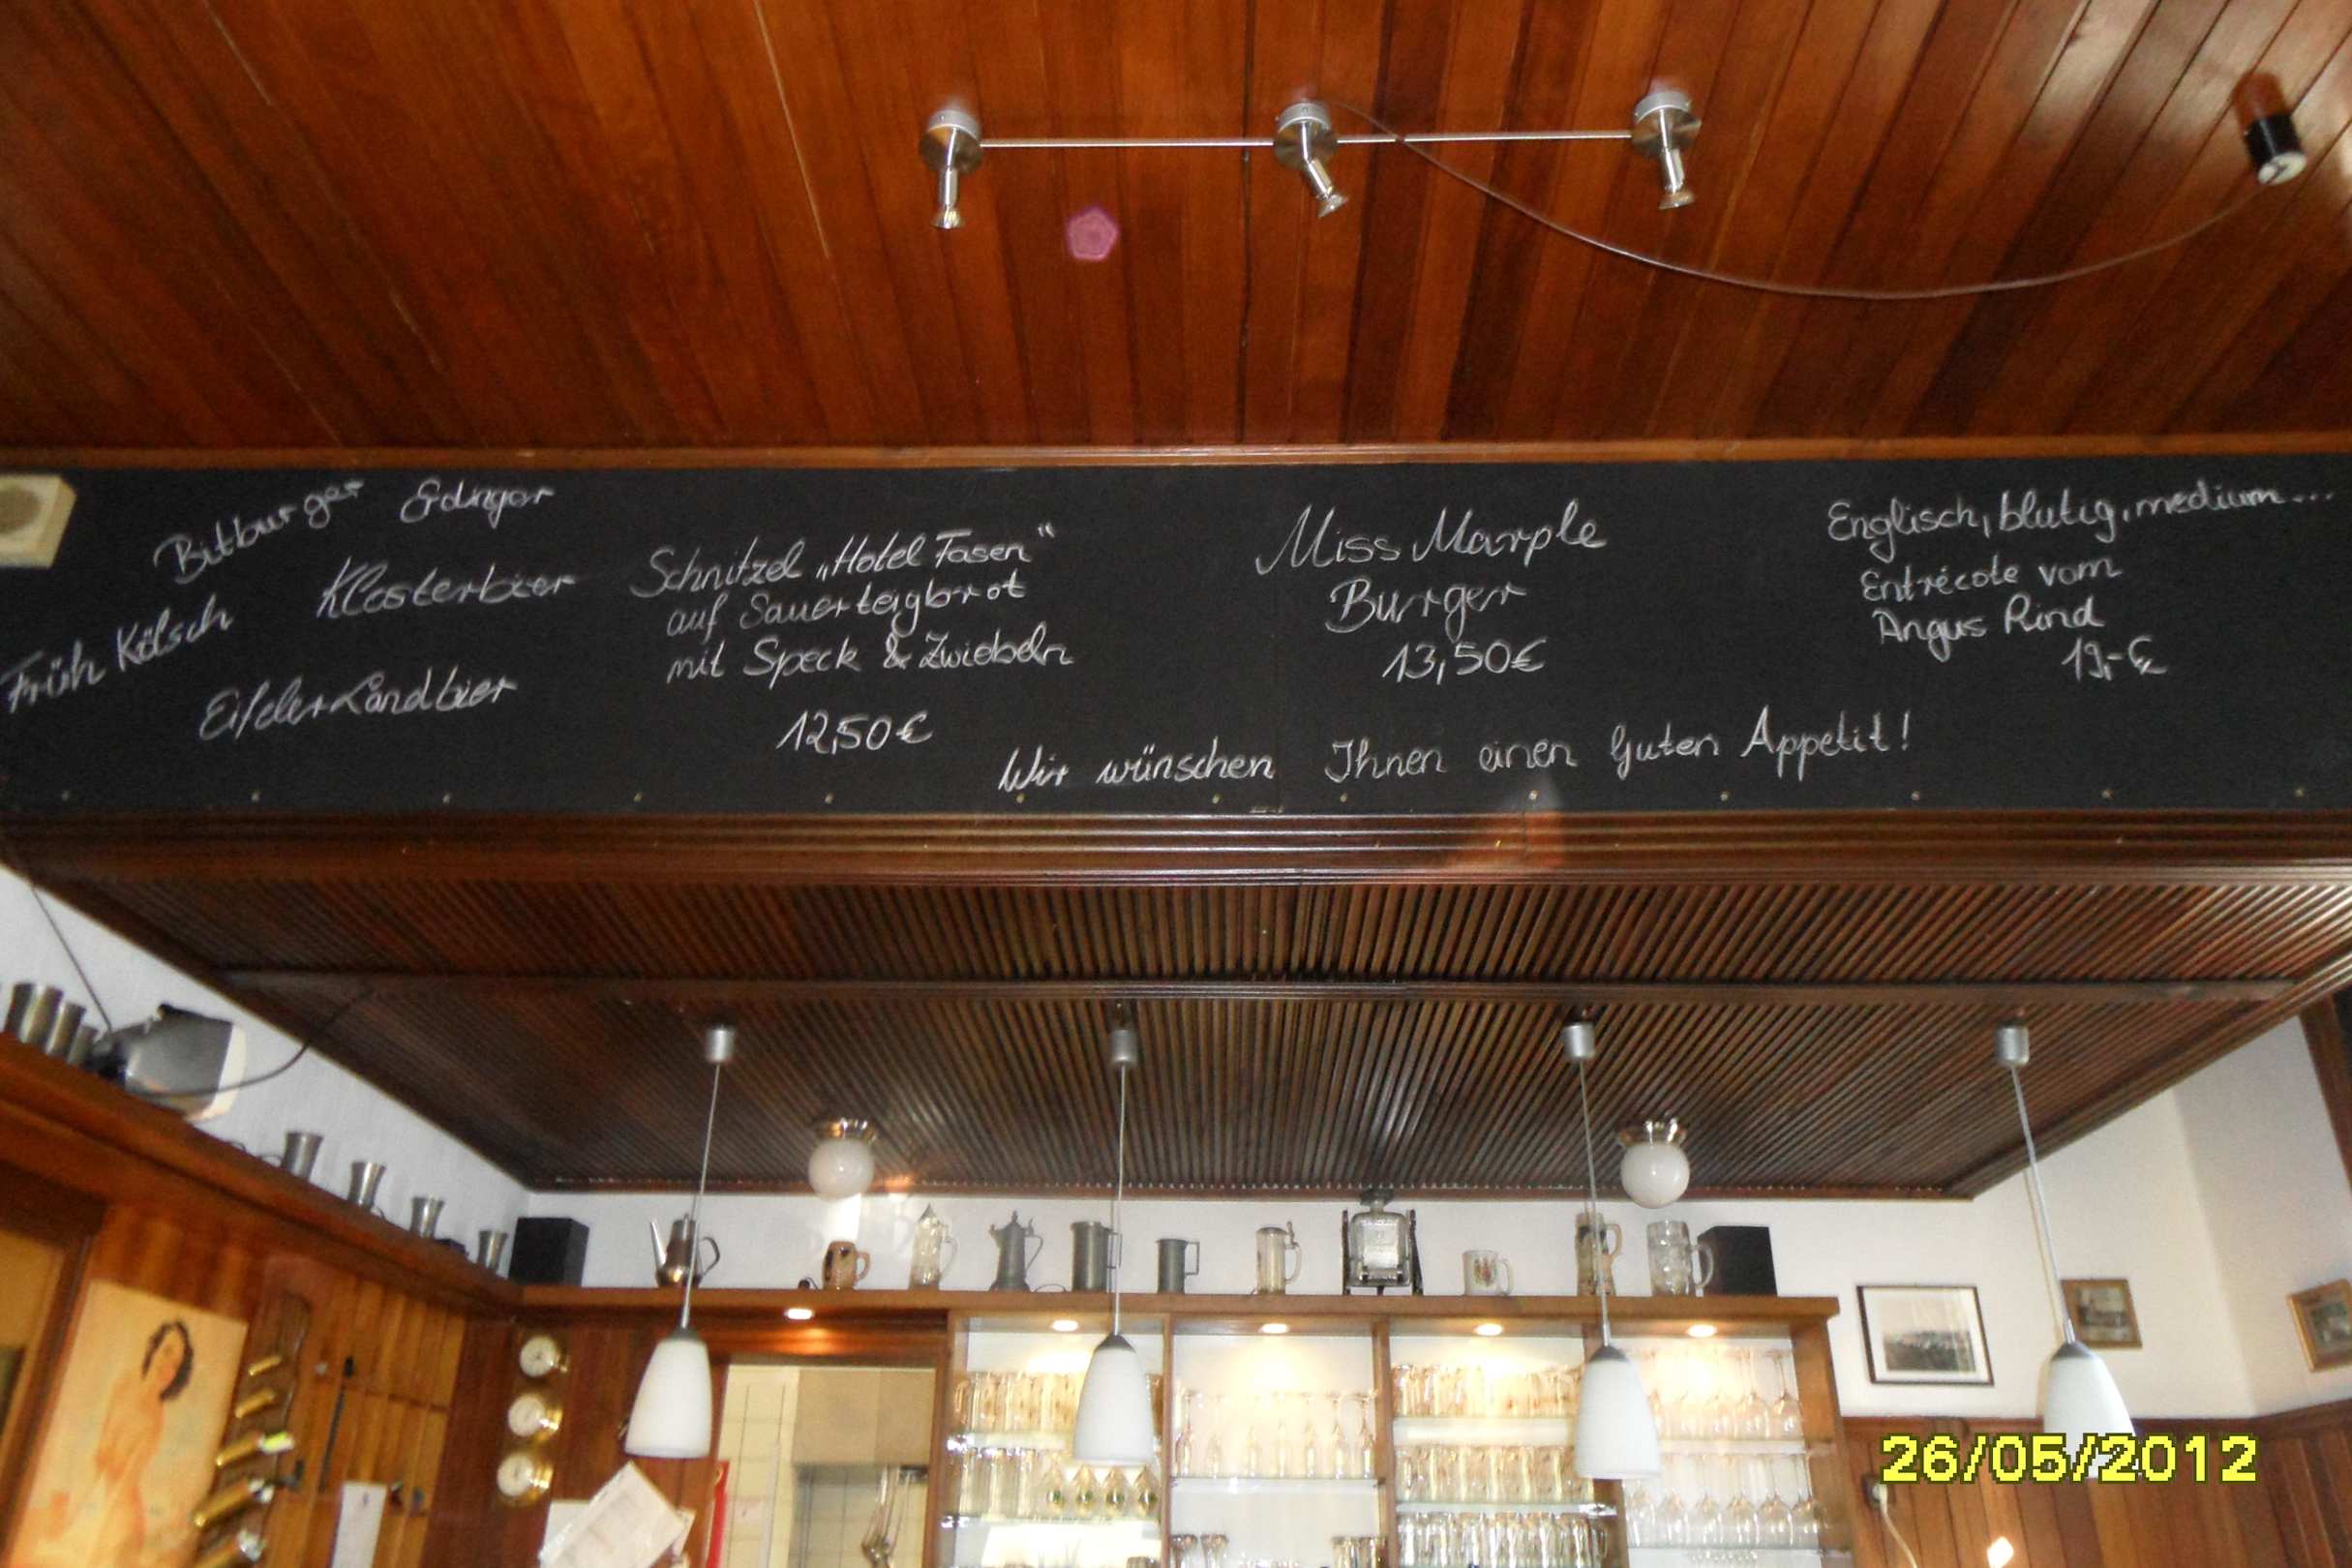 Bitburger Erdinger
Früh Kölsch Klosterbier
Eifeler Landbier
Schnitzel „Hotel Fasen“
auf Sauerteigbrot
mit Speck & Zwiebeln
12,50€
Miss Marple
Burger
13,50€
Englisch, blutig, medium...
Entrécote vom
Angus Rind
19,-€
Wir wünschen Ihnen einen Guten Appetit!
26/05/2012